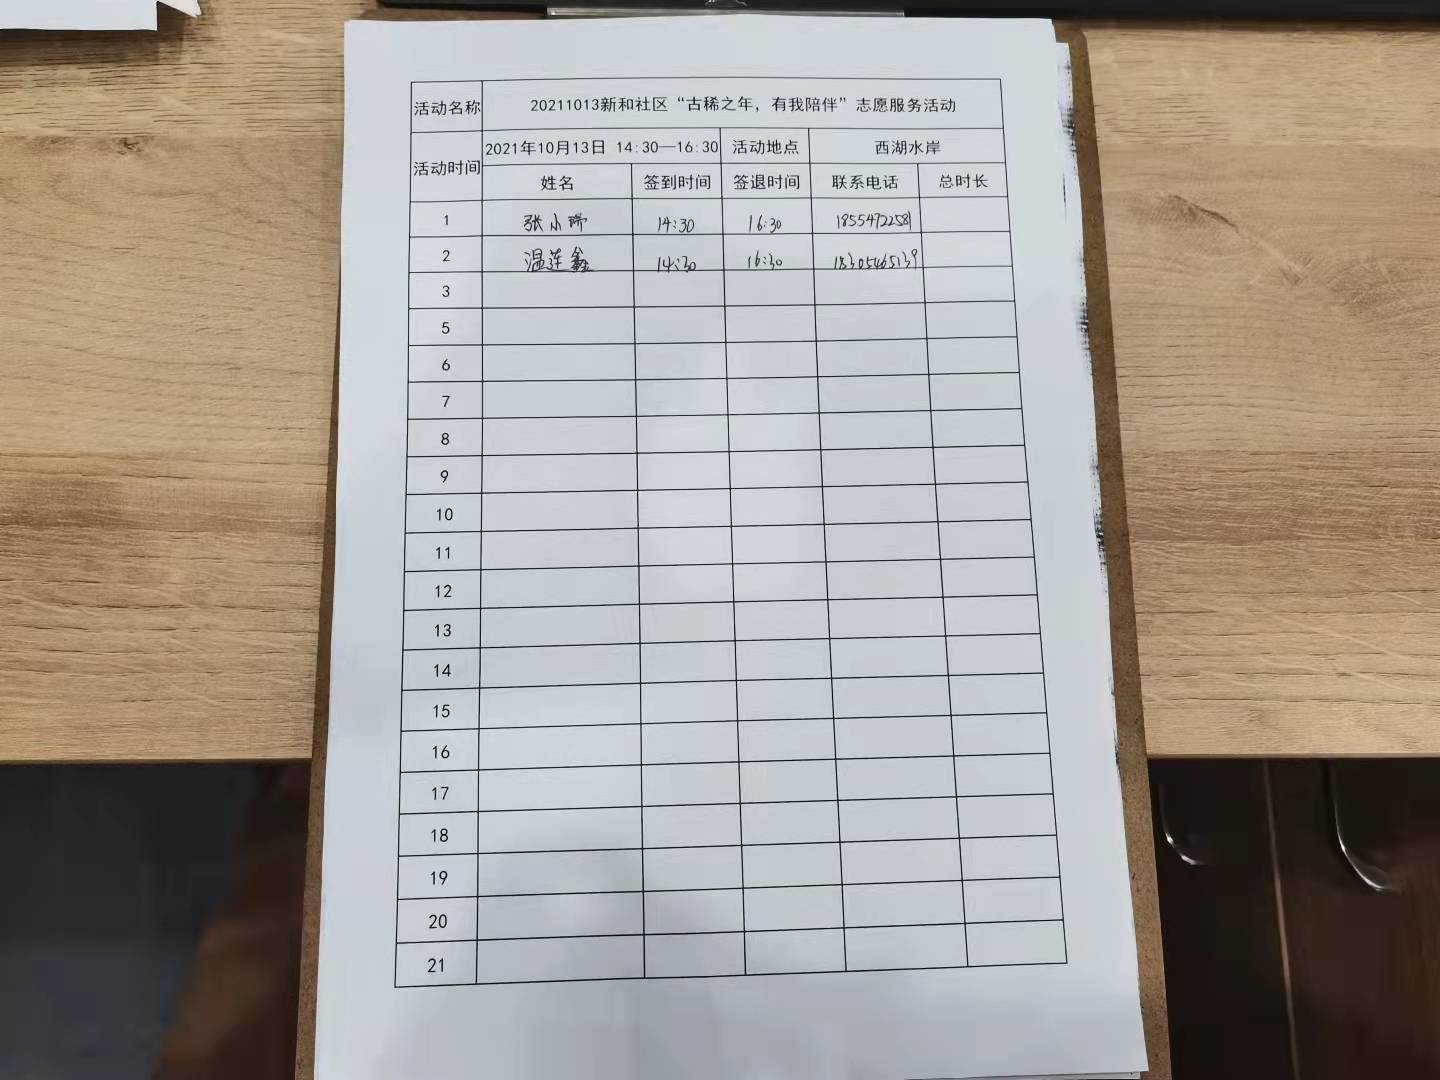 活动名称 20211013新和社区“古稀之年，有我陪伴”志愿服务活动
活动时间 2021年10月13日 14:30—16:30 活动地点 西湖水岸
姓名 签到时间 签退时间 联系电话 总时长
1 张小瑞 14:30 16:30 18554722581
2 温连鑫 14:30 16:30 18305465139
3
5
6
7
8
9
10
11
12
13
14
15
16
17
18
19
20
21